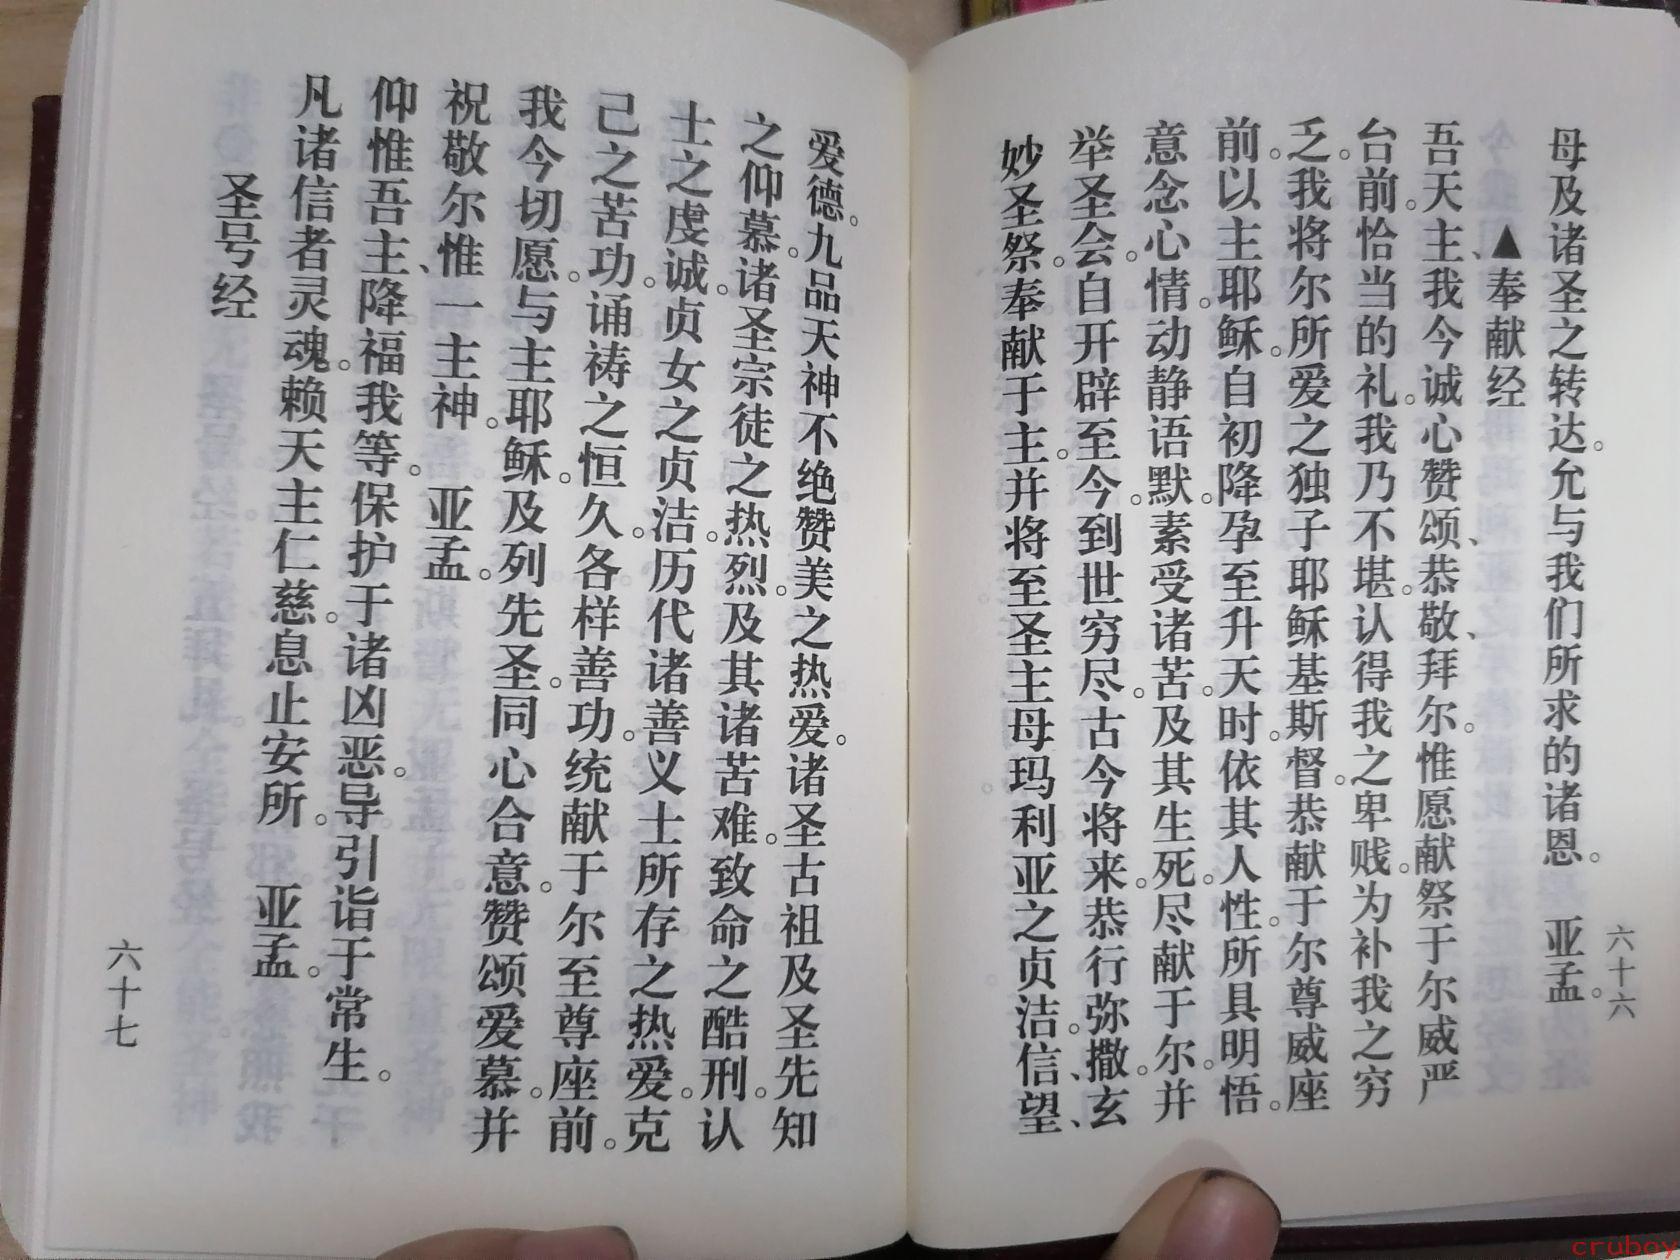 母及诸圣之转达。允与我们所求的诸恩。 亚孟。
▲奉献经
吾天主、我今诚心赞颂、恭敬、拜尔。惟愿献祭于尔威严
台前。恰当的礼。我乃不堪。认得我之卑贱。为补我之穷
乏。我将尔所爱之独子耶稣基斯督。恭献于尔尊威座
前。以主耶稣。自初降孕至升天时。依其人性。所具明悟。
意念心情。动静语默。素受诸苦。及其生死。尽献于尔。并
举圣会。自开辟至今。到世穷尽。古今将来。恭行弥撒。玄
妙圣祭。奉献于主。并将至圣主母玛利亚之贞洁。信、望、
爱德。九品天神不绝赞美之热爱。诸圣古祖及圣先知
之仰慕。诸圣宗徒之热烈。及其诸苦难。致命之酷刑。认
士之虔诚。贞女之贞洁。历代诸善义士所存之热爱。克
己之苦功。诵祷之恒久。各样善功。统献于尔至尊座前。
我今切愿。与主耶稣。及列先圣。同心合意。赞颂爱慕。并
祝敬尔惟一主神。 亚孟。
仰惟吾主、降福我等。保护于诸凶恶。导引诣于常生。
凡诸信者灵魂。赖天主仁慈。息止安所。 亚孟。
圣号经
六十六
六十七
cruboy